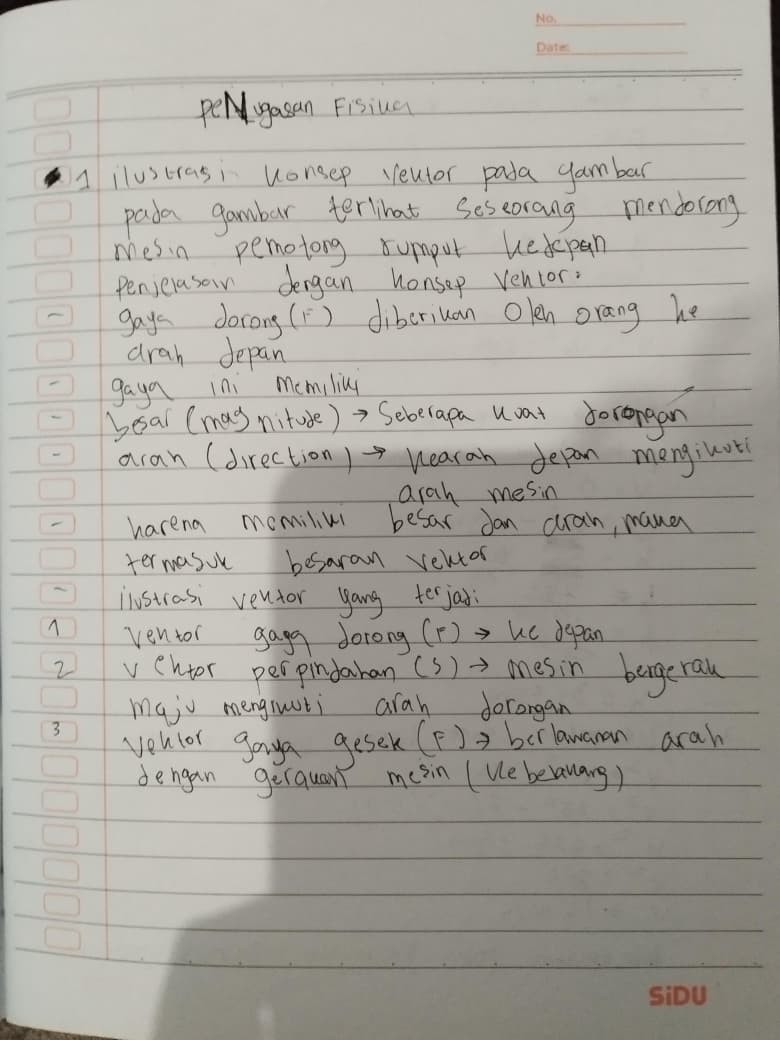 No.
Date:
PeNugasan Fisika
1 ilustrasi konsep vektor pada gambar
pada gambar terlihat seseorang mendorong
mesin pemotong rumput kedepan
penjelasan dengan konsep vektor:
- gaya dorong (F) diberikan oleh orang ke
arah depan
- gaya ini memiliki
- besar (magnitude) → Seberapa kuat dorongan
- arah (direction) → kearah depan mengikuti
arah mesin
- karena memiliki besar dan arah, maka
termasuk besaran vektor
- ilustrasi vektor yang terjadi
1 vektor gaya dorong (F) → ke depan
2 vektor perpindahan (s) → mesin bergerak
maju mengikuti arah dorongan
3 vektor gaya gesek (F) → berlawanan arah
dengan gerakan mesin (ke belakang)
SiDU